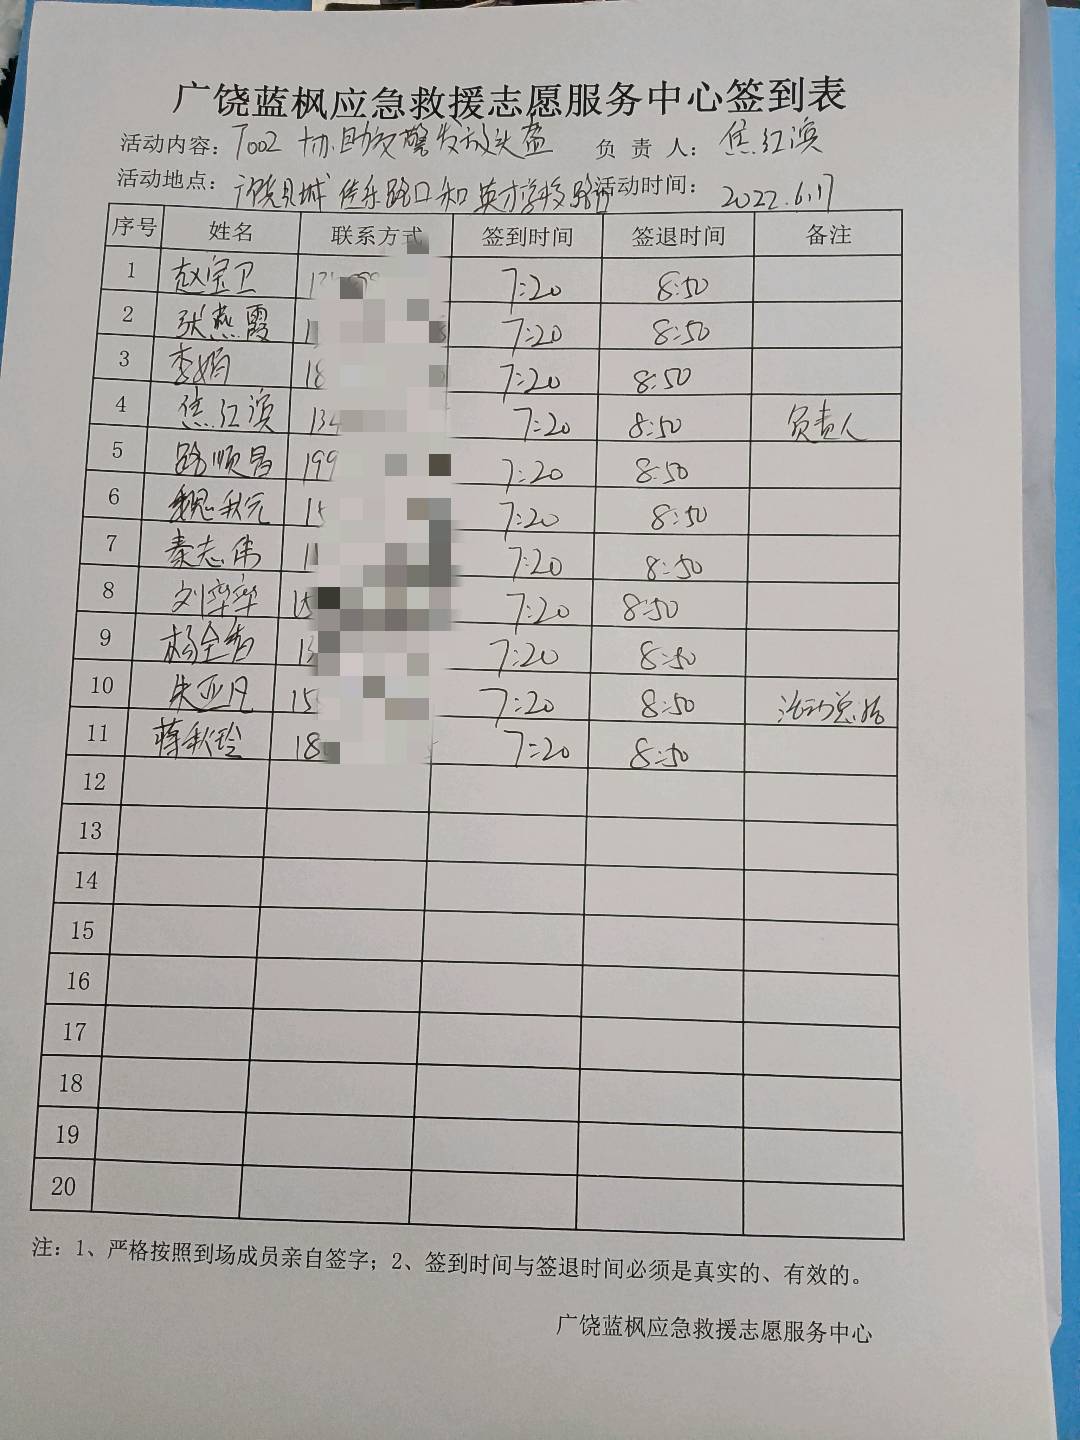 广饶蓝枫应急救援志愿服务中心签到表
活动内容：T002 协助交警发放头盔 负责人：焦红滨
活动地点：广饶县城 乐路口和英才学校路口 活动时间：2022.6.17
序号 姓名 联系方式 签到时间 签退时间 备注
1 赵宝卫 7:20 8:50
2 张燕霞 7:20 8:50
3 李娟 18 7:20 8:50
4 焦红滨 134 7:20 8:50 负责人
5 路顺昌 199 7:20 8:50
6 魏秋元 15 7:20 8:50
7 秦志伟 1 7:20 8:50
8 刘 15 7:20 8:50
9 杨全 13 7:20 8:50
10 朱亚凡 15 7:20 8:50 活动总结
11 蒋秋玲 18 7:20 8:50
12
13
14
15
16
17
18
19
20
注：1、严格按照到场成员亲自签字；2、签到时间与签退时间必须是真实的、有效的。
广饶蓝枫应急救援志愿服务中心